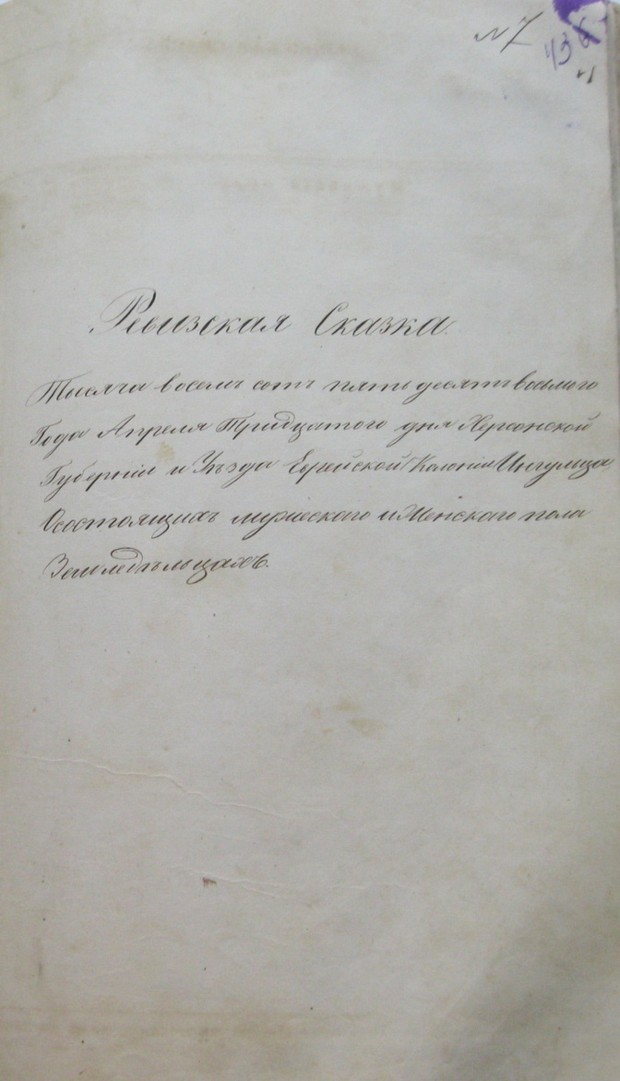 № 7
436
Ревизская Сказка.
Тысяча восемь сотъ пятьдесятъ восьмого
Года Апреля Тридцатого дня Херсонской
Губерніи и Уѣзда Еврейской Колоніи Ингульца
Осостоящихъ мужескаго и Женскаго пола
Земледѣльцахъ.